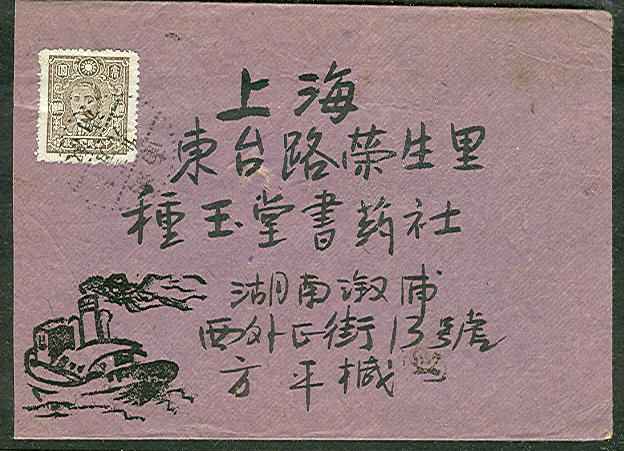 上海
東台路榮生里
種玉堂書葯社
湖南溆浦
西外正街13號
方平械